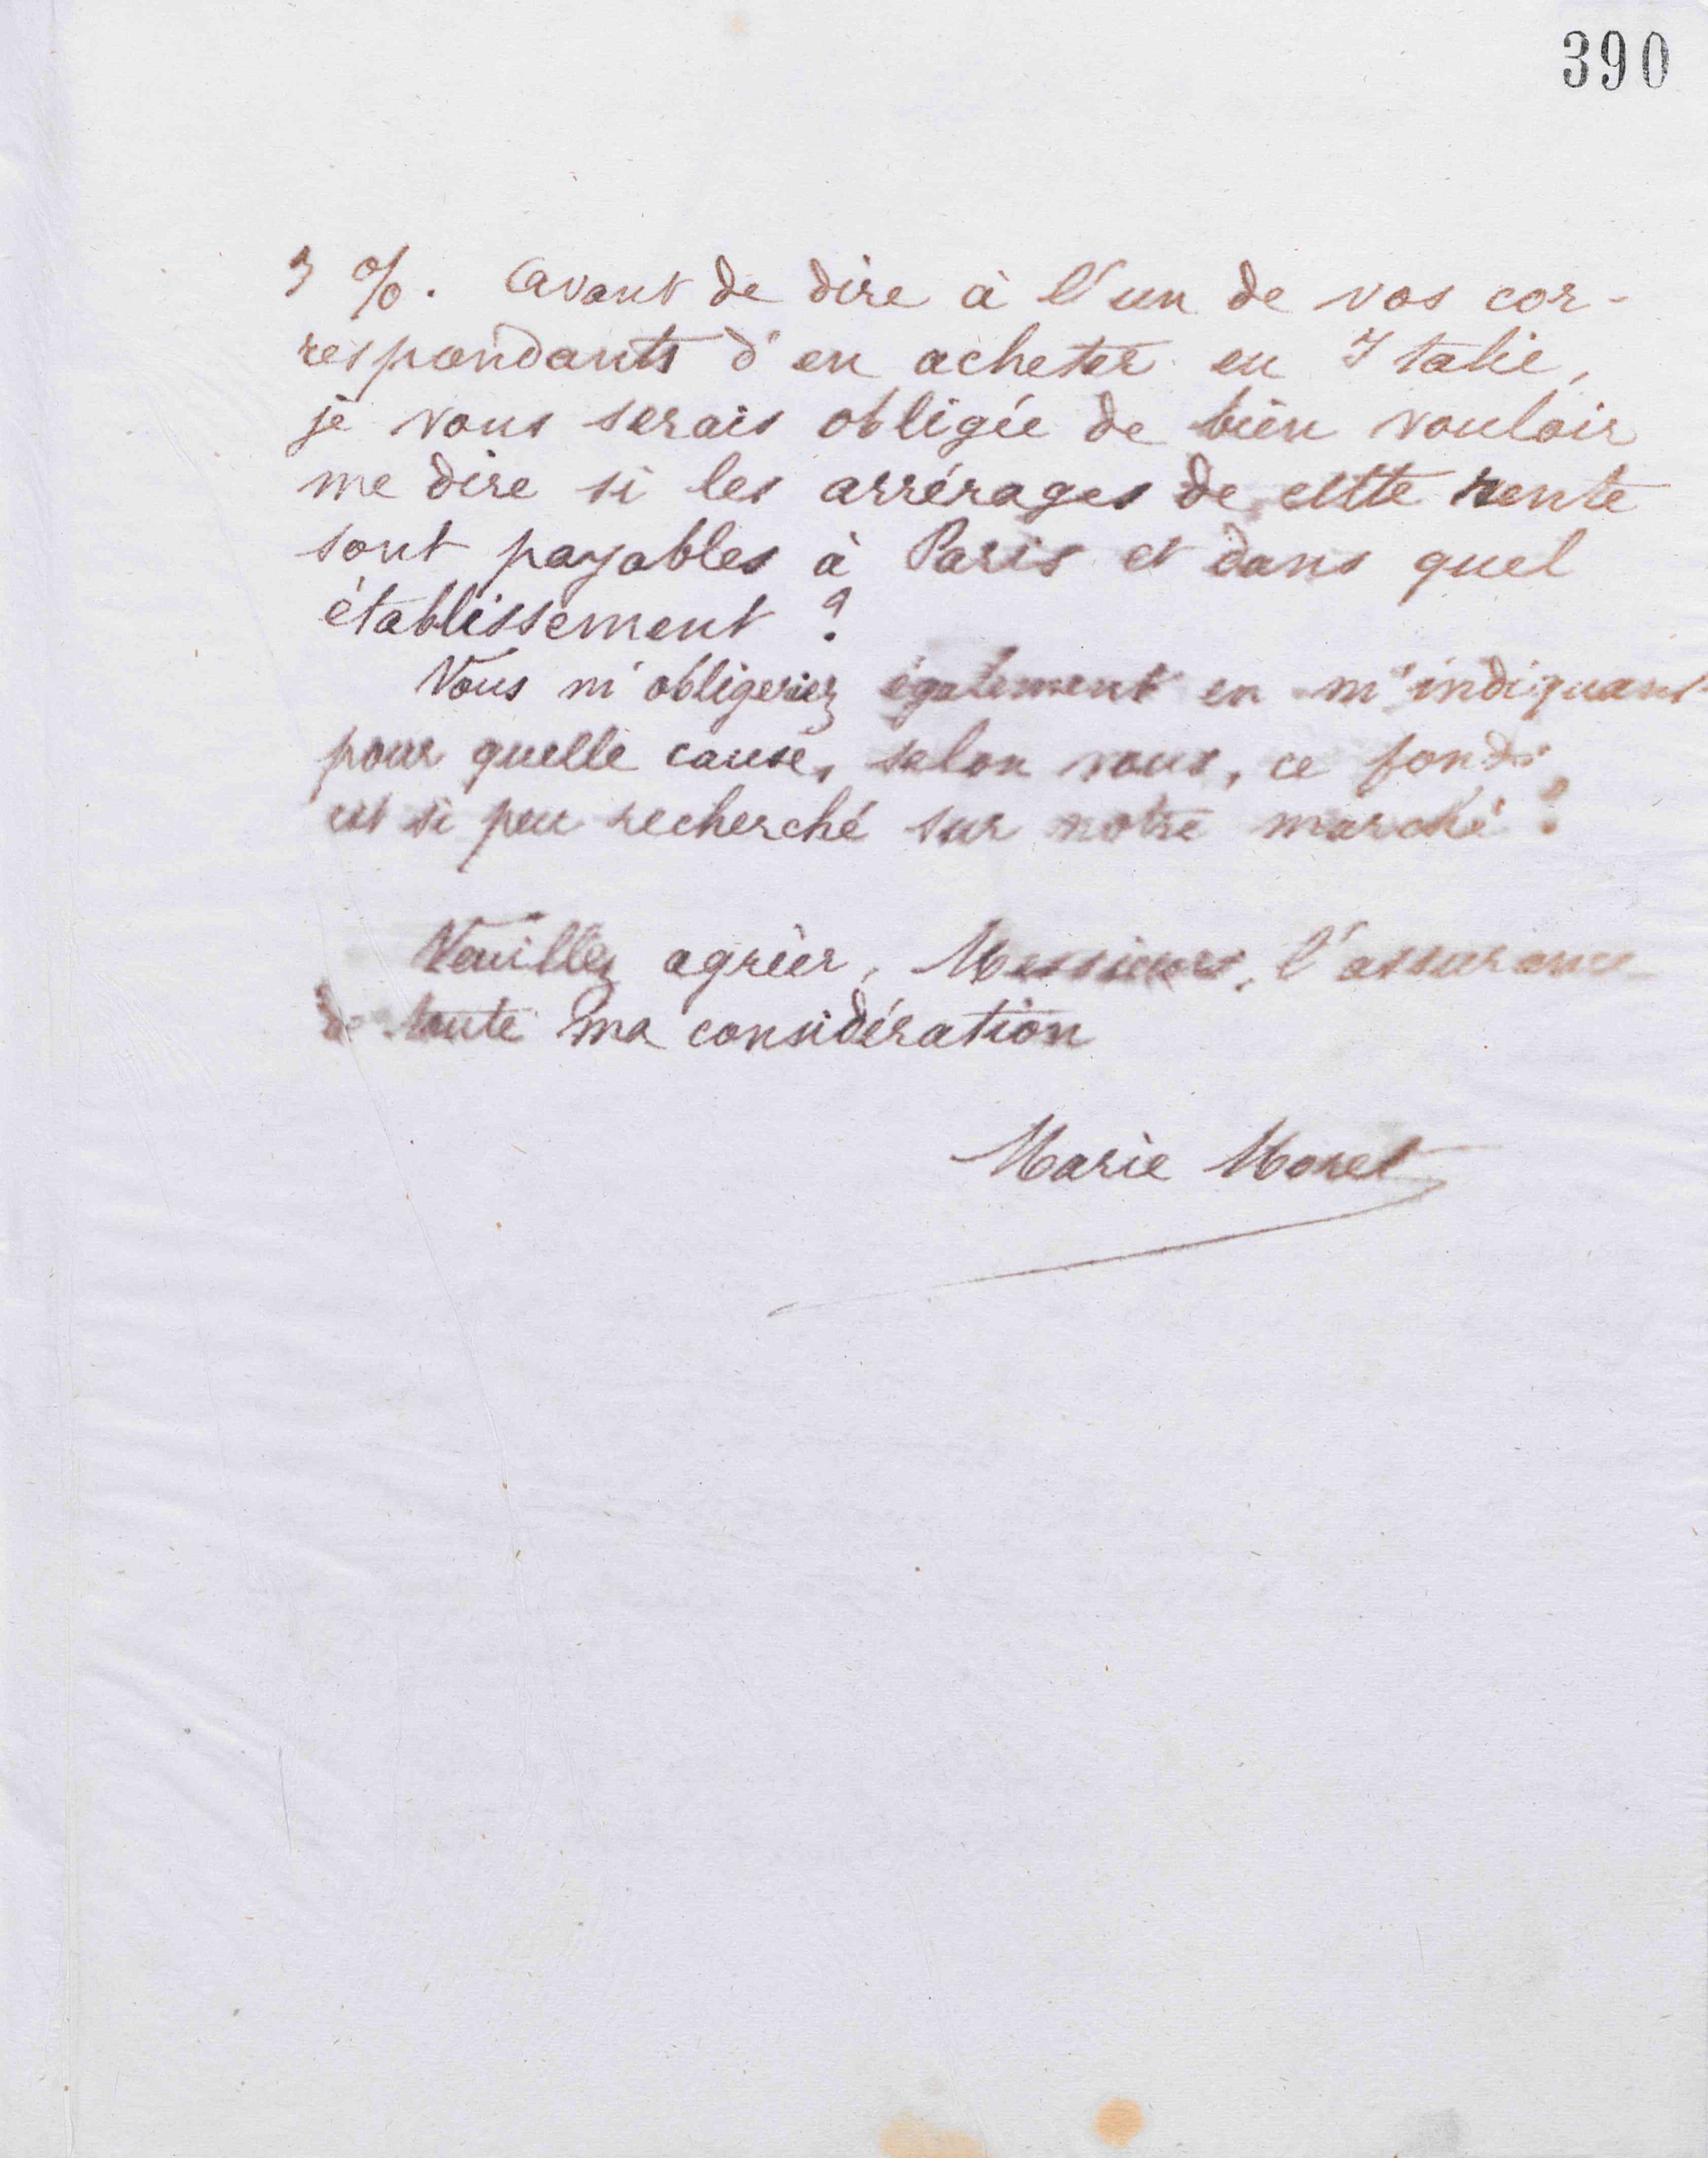 390
3 %. Avant de dire à l'un de vos cor-
respondants d'en acheter en Italie,
je vous serais obligée de bien vouloir
me dire si les arrérages de cette rente
sont payables à Paris et dans quel
établissement ?
Vous m'obligeriez également en m'indiquant
pour quelle cause, selon vous, ce fonds
est si peu recherché sur notre marché ?
Veuillez agréer, Messieurs, l'assurance
de toute ma considération
Marie Moret